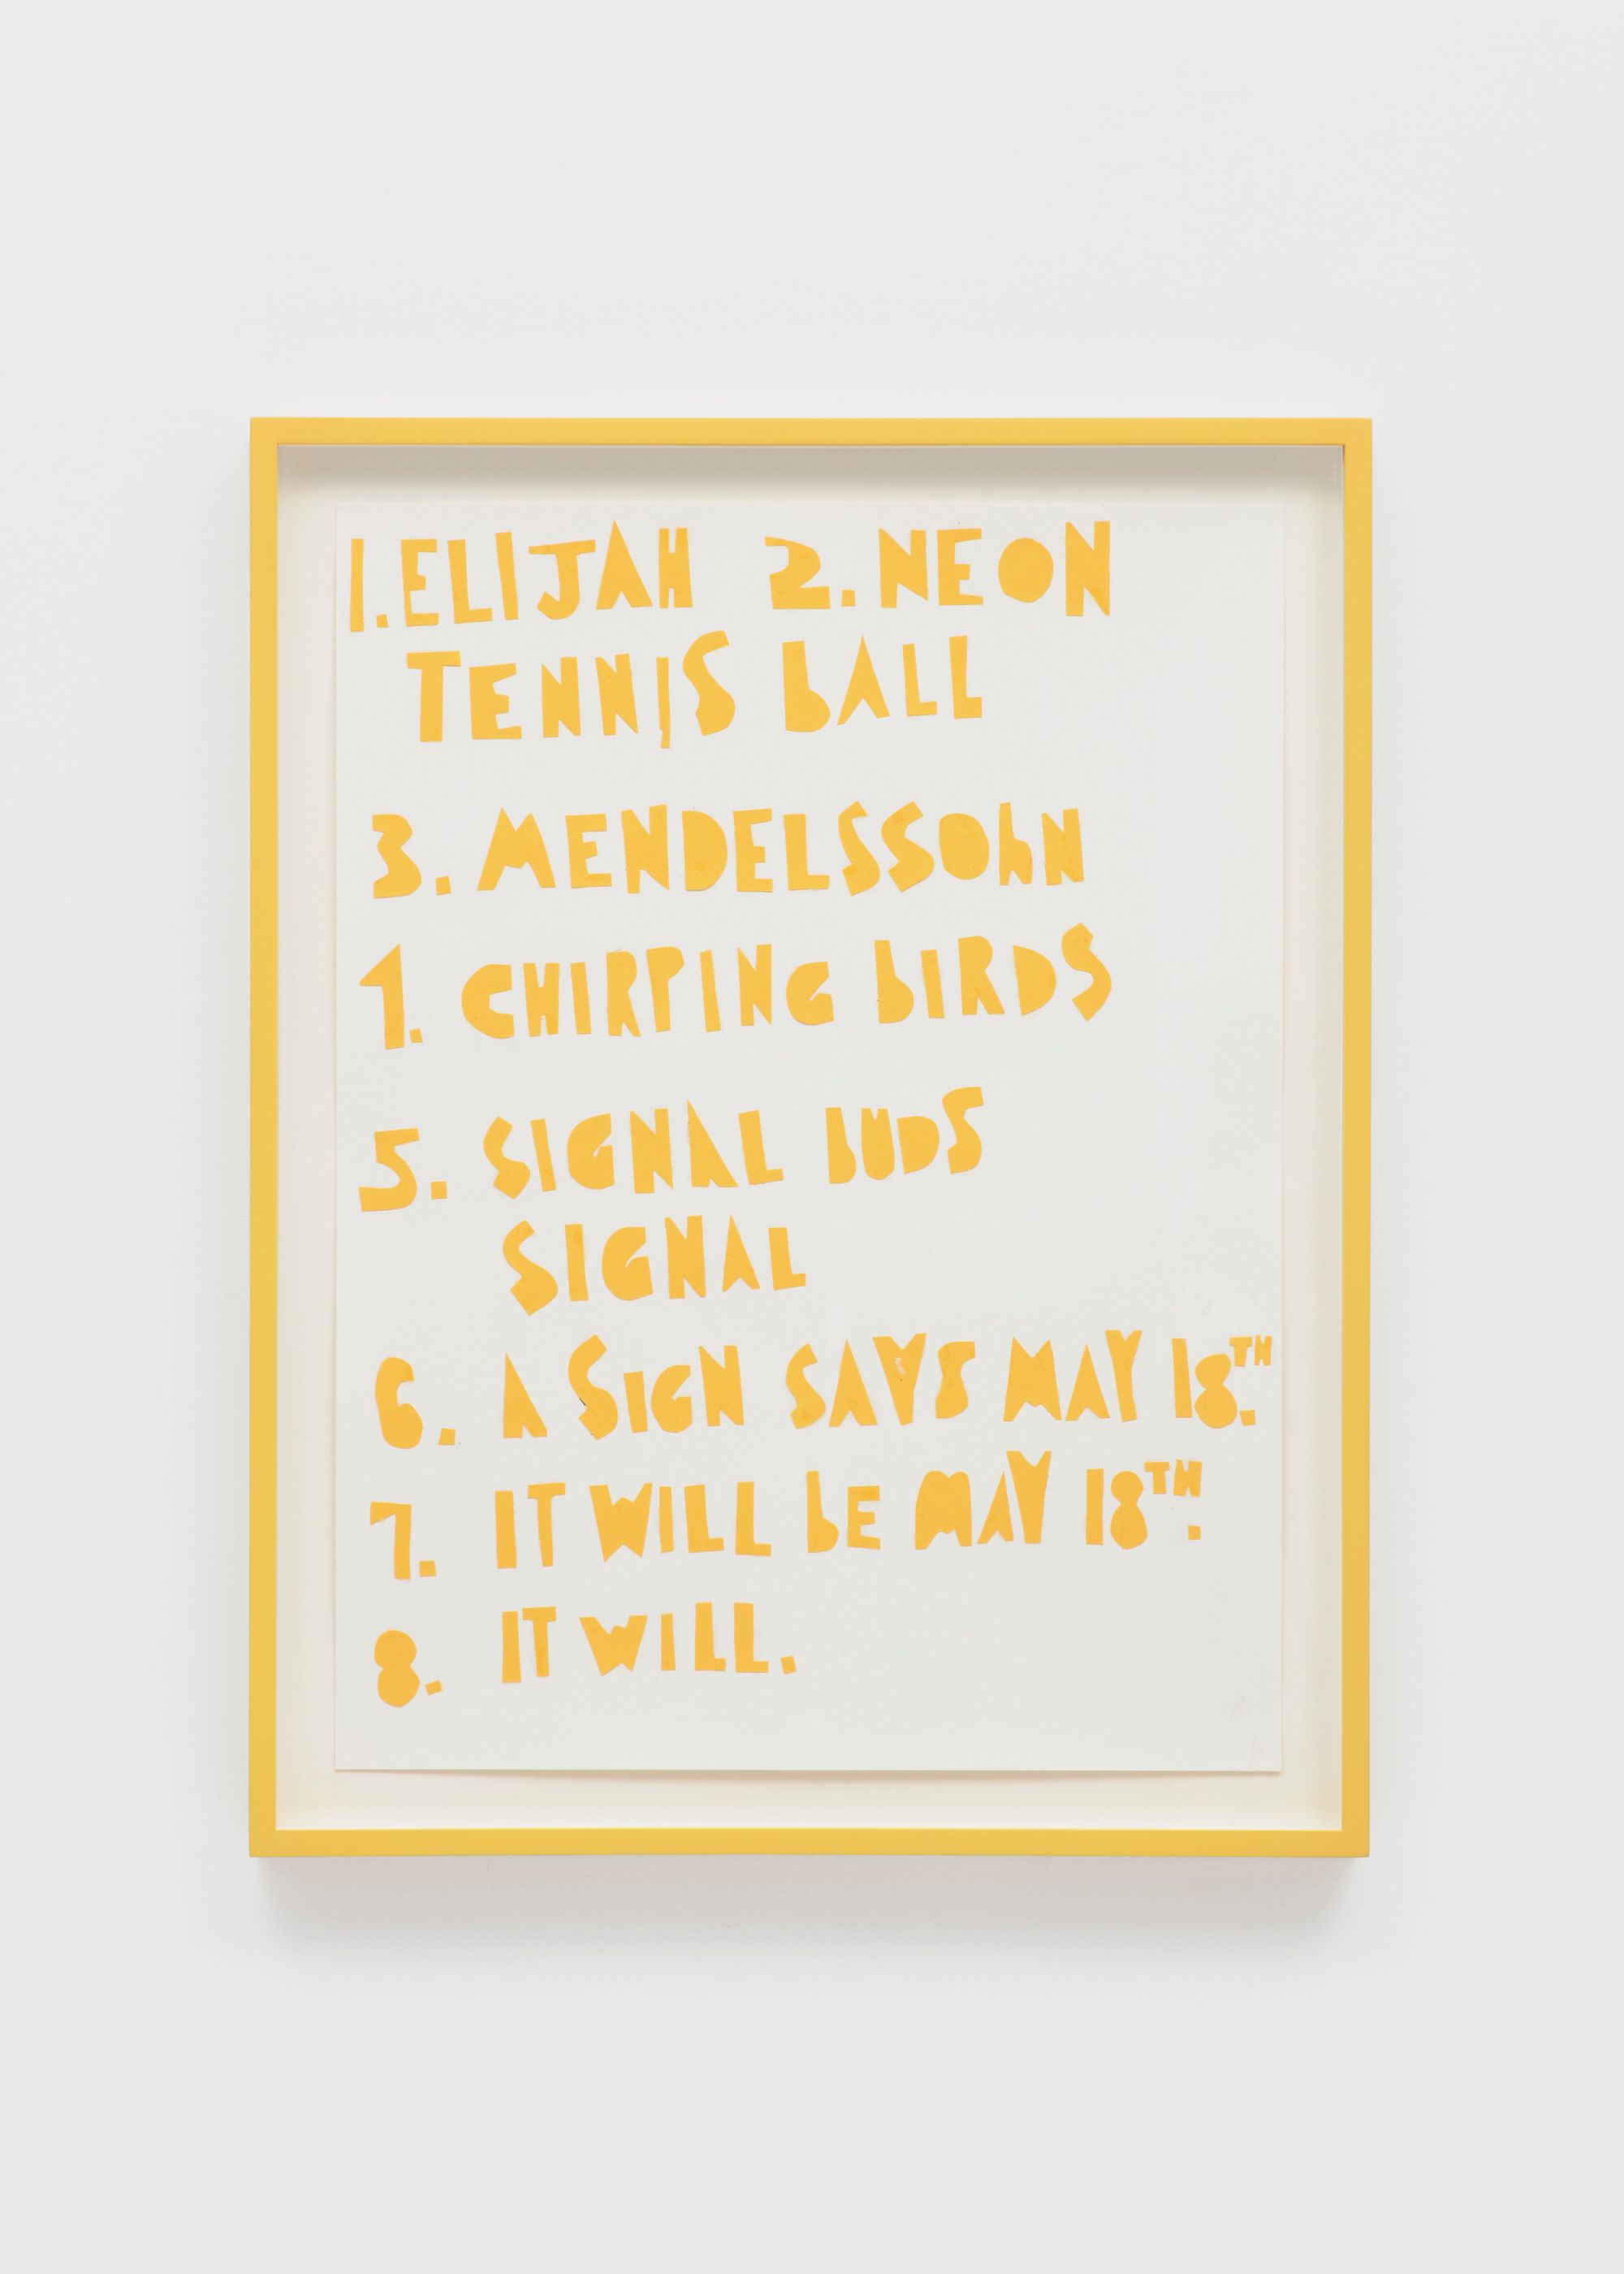 1. ELIJAH 2. NEON
TENNIS BALL
3. MENDELSSOHN
4. CHIRPING BIRDS
5. SIGNAL BUDS
SIGNAL
6. A SIGN SAYS MAY 18TH.
7. IT WILL BE MAY 18TH.
8. IT WILL.